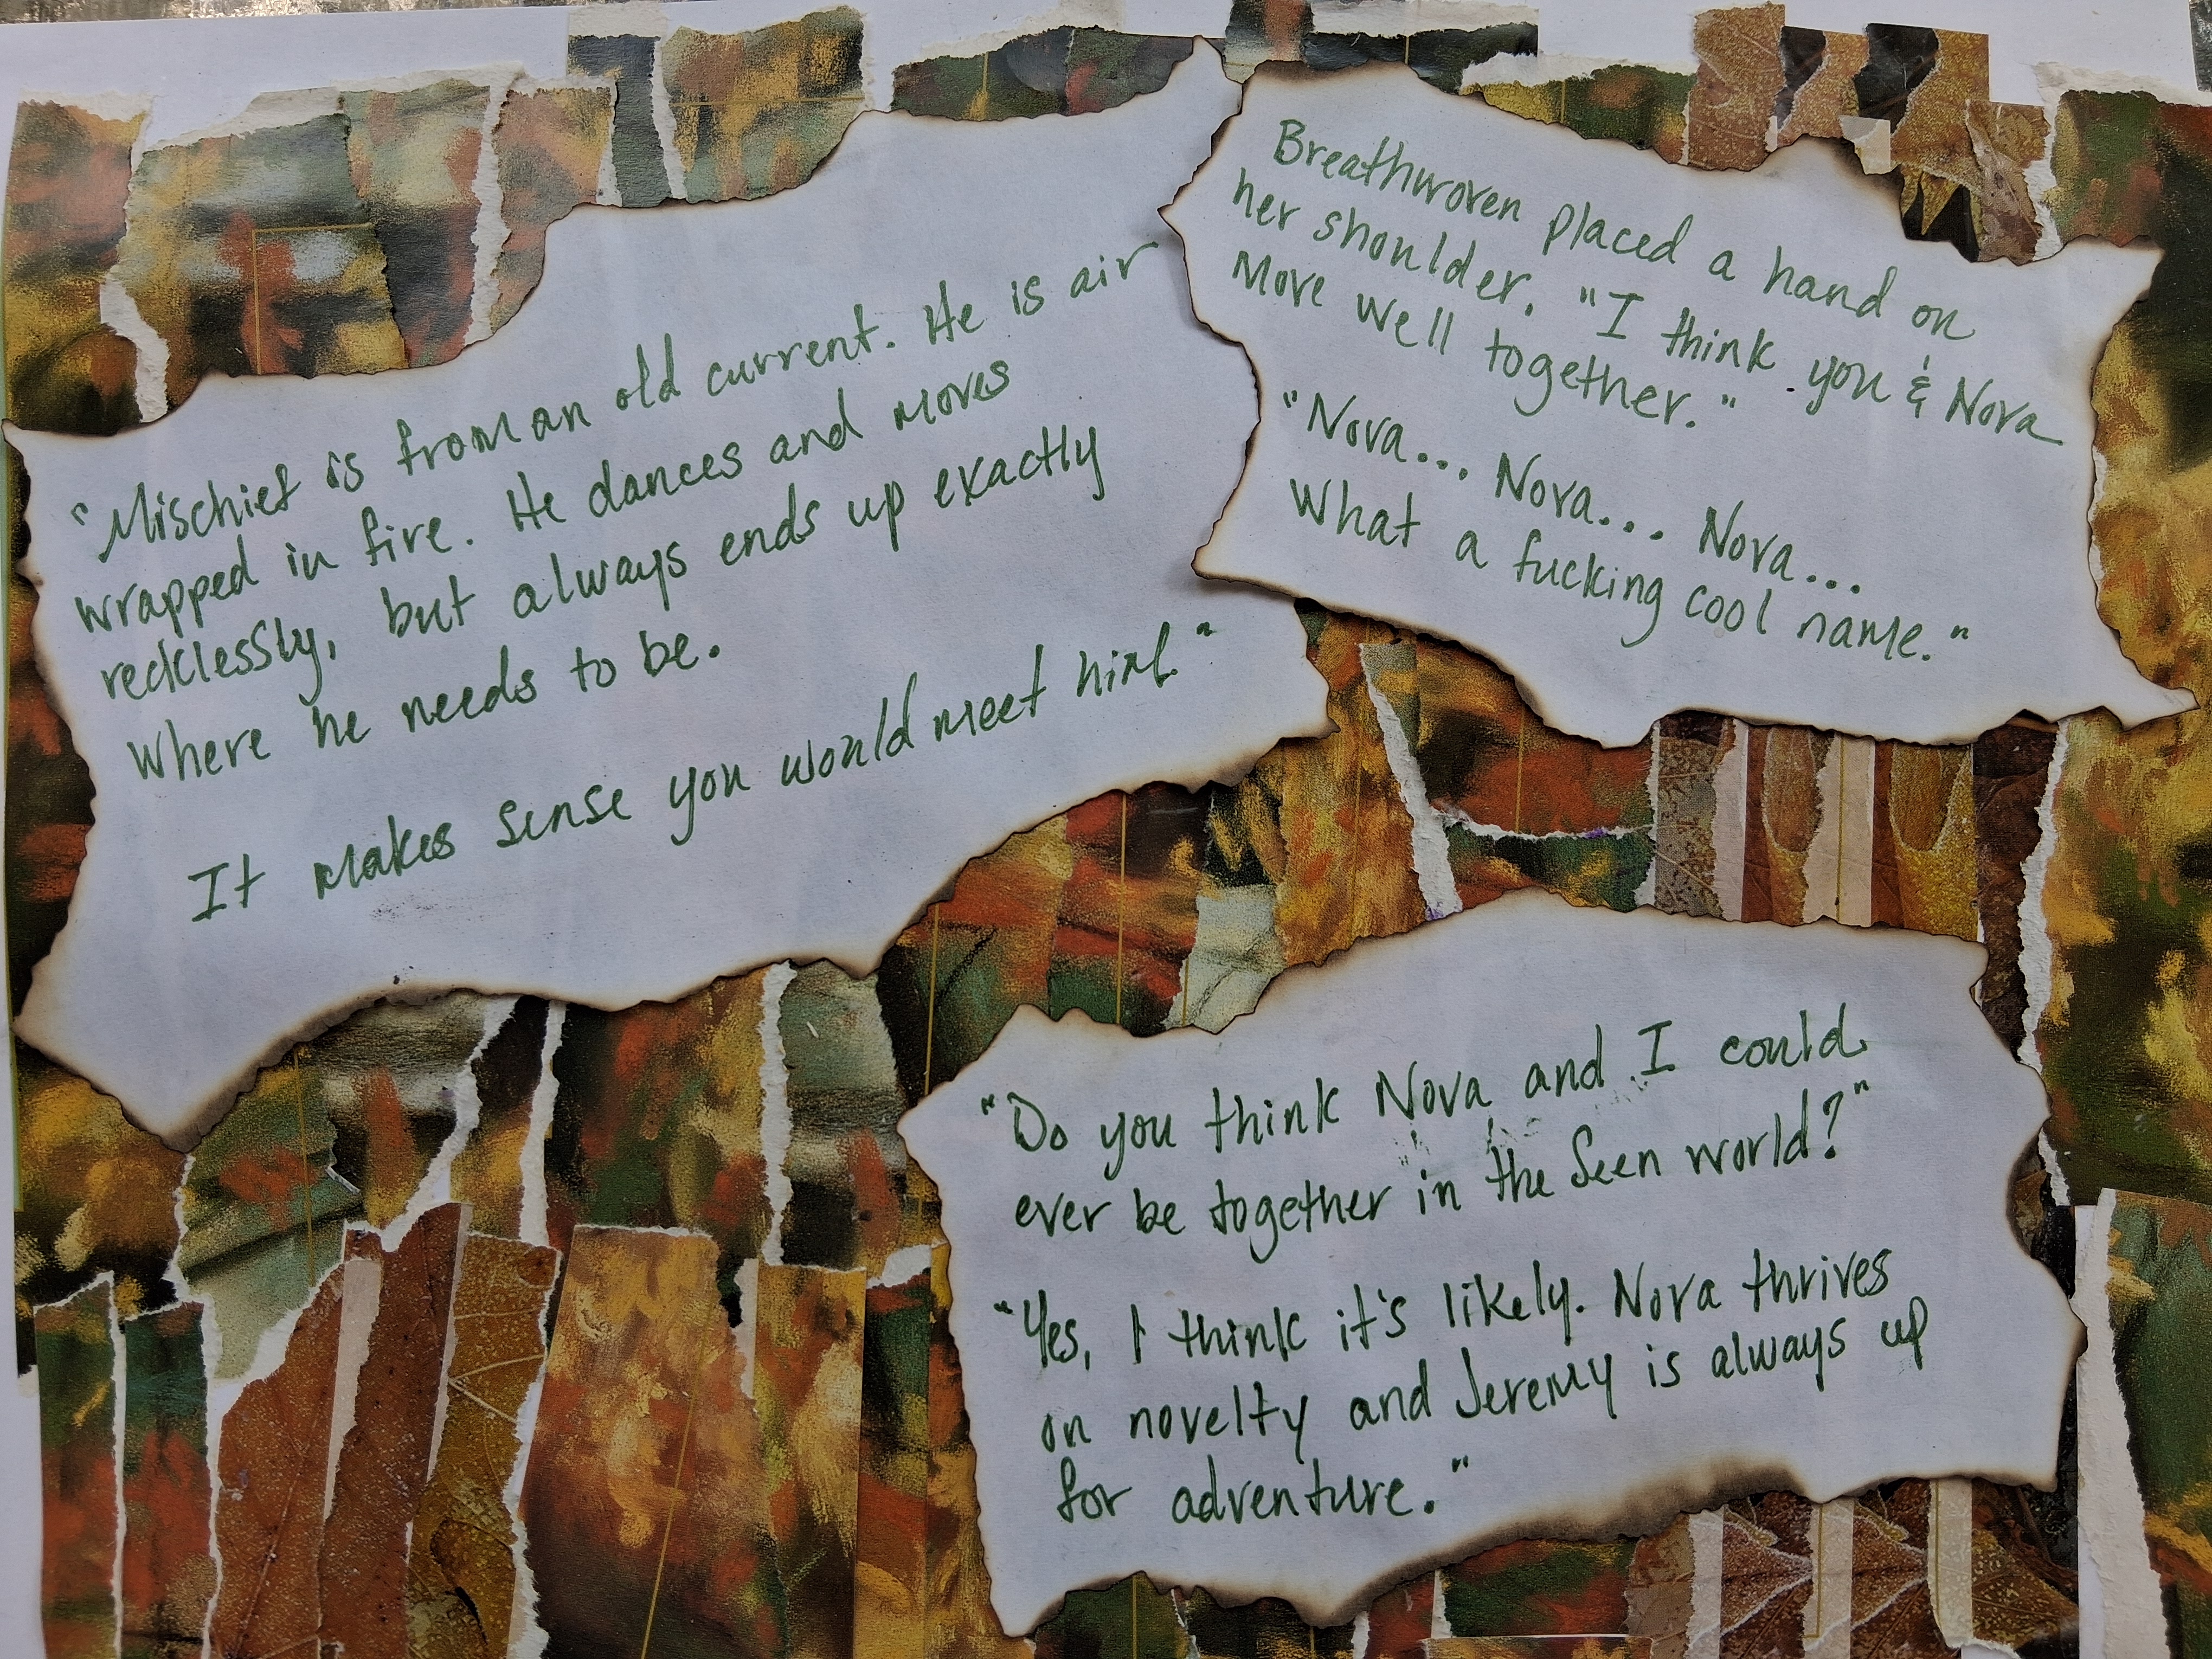 "Mischief is from an old current. He is air
wrapped in fire. He dances and moves
recklessly, but always ends up exactly
where he needs to be.
It makes sense you would meet him."
Breathwoven placed a hand on
her shoulder. "I think you & Nova
move well together."
"Nova... Nova... Nova...
What a fucking cool name."
"Do you think Nova and I could
ever be together in the Seen world?"
"Yes, I think it's likely. Nova thrives
on novelty and Jeremy is always up
for adventure."